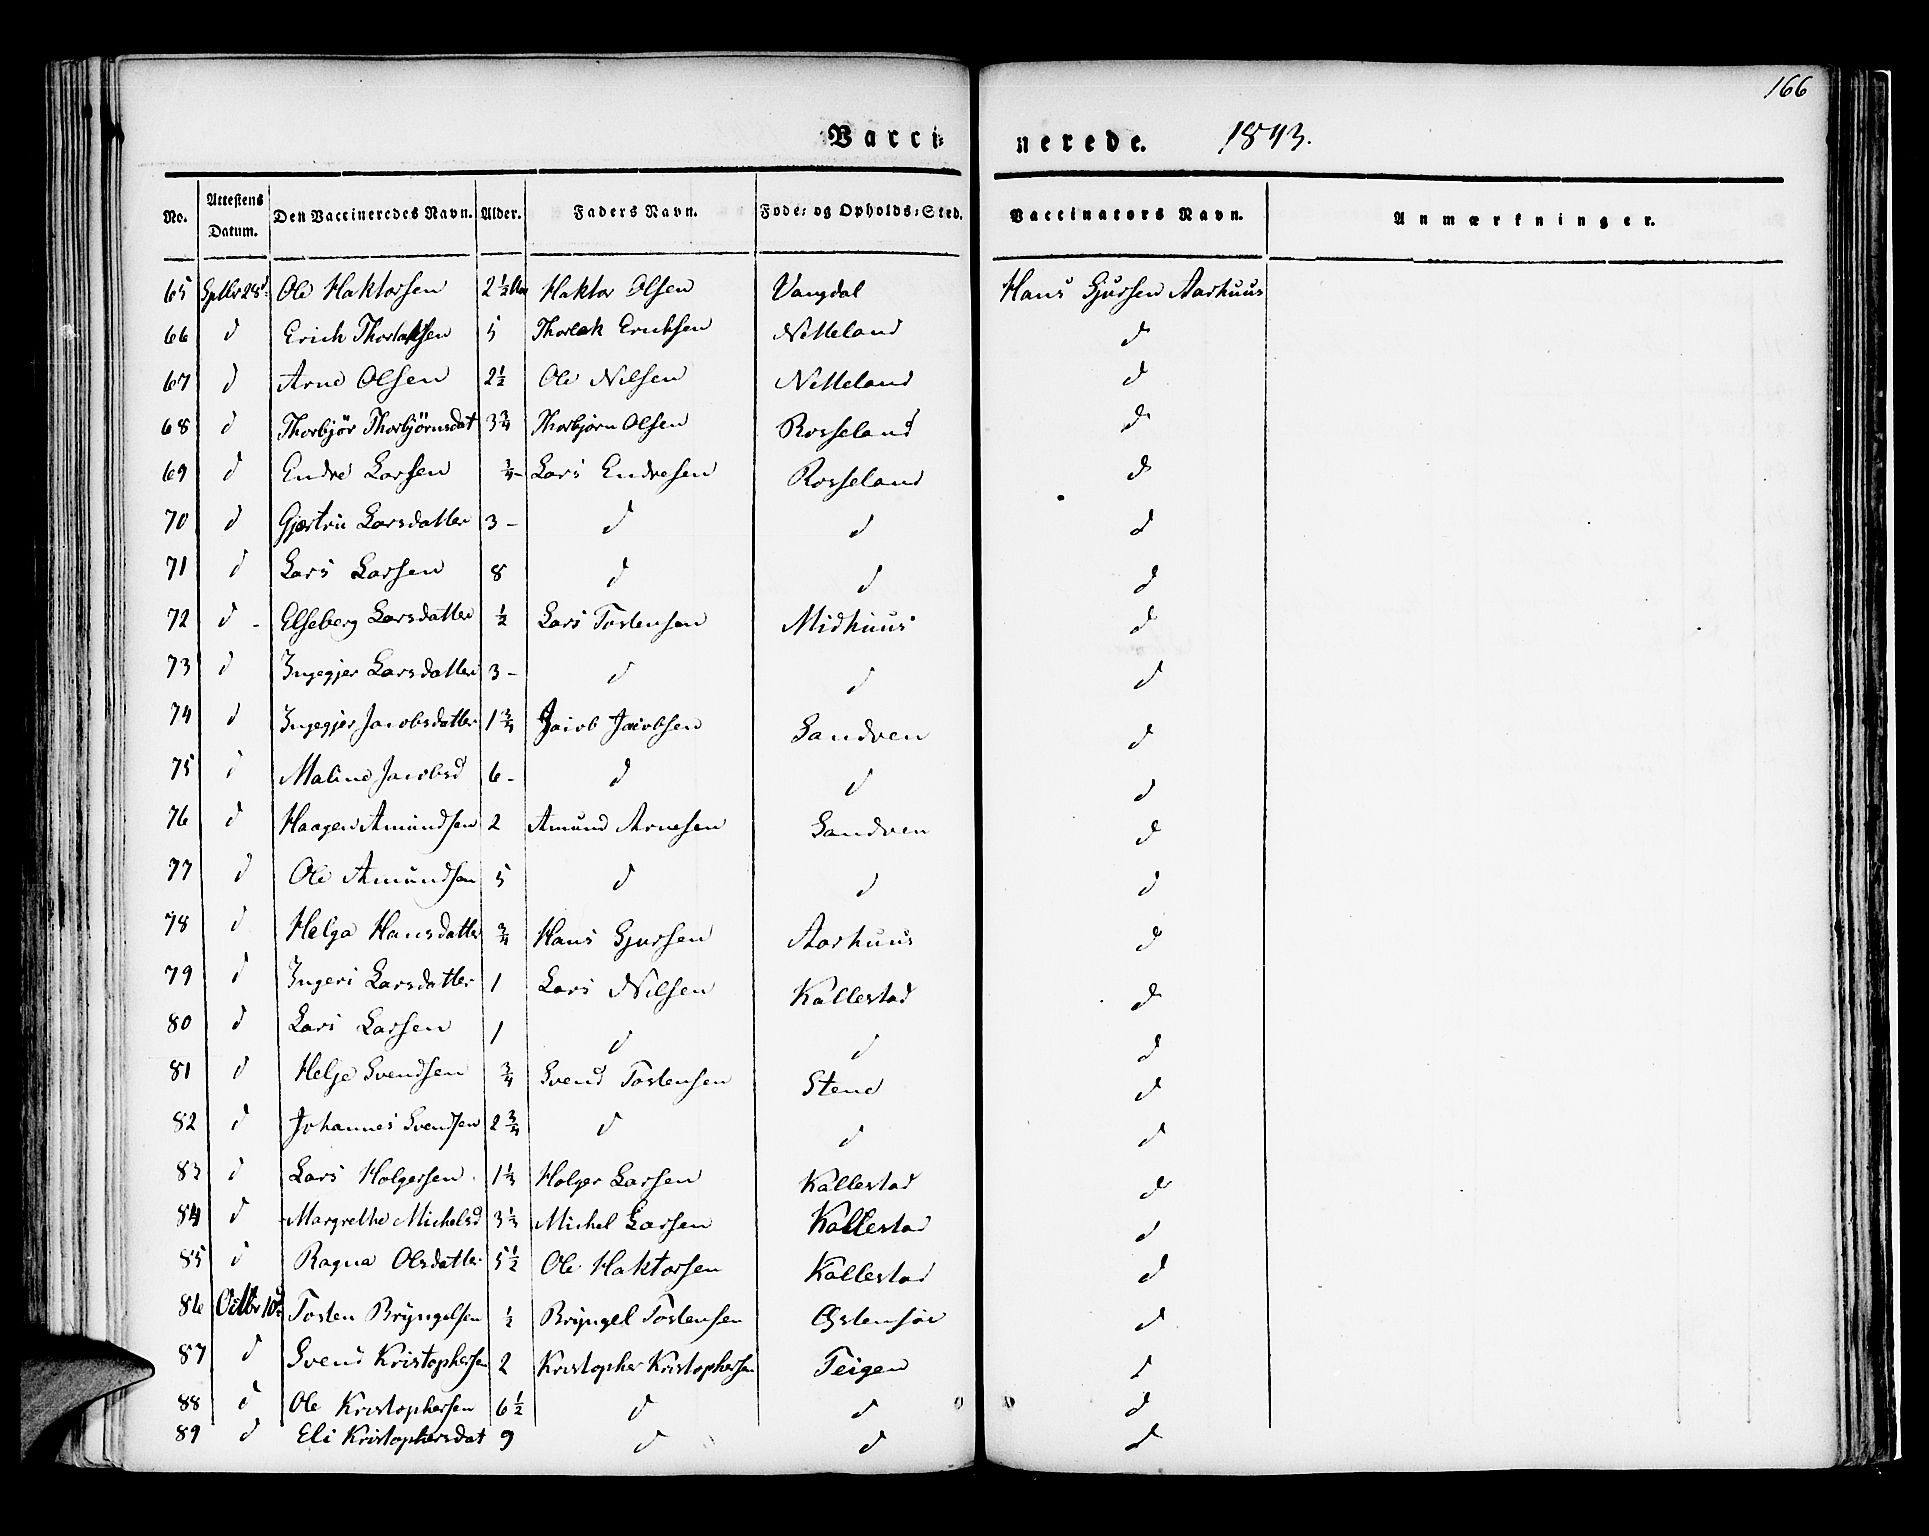 166
Vaccinerede. 1843.
No. Attestens Datum. Den Vaccineredes Navn. Alder. Faders Navn. Føde- og Opholds-Sted. Vaccinators Navn. Anmærkninger.
65 Sptbr 28d Ole Haktorsen 2½ Haktor Olsen Vangdal Hans Gjursen Aarhuus
66 d Erich Thorlaksen 5 Thorlak Eriksen Netteland d
67 d Arne Olsen 2½ Ole Nilsen Netteland d
68 d Thorbjør Thorbjørnsdat 3¾ Thorbjørn Olsen Rosseland d
69 d Endre Larsen ¾- Lars Endresen Rosseland d
70 d Gjertrü Larsdatter 3- d d d
71 d Lars Larsen 8 d d d
72 d - Elseberg Larsdatter ½ Lars Tostensen Midhuus d
73 d Ingegjer Larsdatter 3- d d d
74 d Ingegjer Jacobsdatter 1¾ Jacob Jacobsen Sandven d
75 d Maline Jacobsd 6- d d d
76 d Haagen Amundsen 2 Amund Arnesen Sandven d
77 d Ole Amundsen 5 d d d
78 d Helga Hansdatter ¾ Hans Gjursen Aarhuus d
79 d Ingeri Larsdatter 1 Lars Nilsen Kallestad d
80 d Lars Larsen 1 d d d
81 d Helje Svendsen ¾ Svend Tostensen Stene d
82 d Johannes Svendsen 2¾ d d d
83 d Lars Holgersen 1⅓ Holger Larsen Kallestad d
84 d Margrethe Michelsd 3⅓ Michel Larsen Kallestad d
85 d Ragna Olsdatter 5½ Ole Haktorsen Kallestad d
86 Octbr 10d Tosten Bryngelsen ½ Bryngel Tostensen Østensøe d
87 d Svend Kristophersen 2 Kristopher Kristophersen Teigen d
88 d Ole Kristophersen 6½ d d d
89 d Eli Kristophersdat 9 d d d